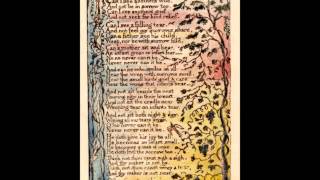 Can I see anothers woe,
And not be in sorrow too.
Can I see anothers grief,
And not seek for kind relief.
Can I see a falling tear,
And not feel my sorrows share,
Can a father see his child,
Weep, nor be with sorrow fill'd.
Can a mother sit and hear,
An infant groan an infant fear
No no never can it be,
Never never can it be.
And can he who smiles on all
Hear the wren with sorrows small,
Hear the small birds grief & care
Hear the woes that infants bear
And not sit beside the nest
Pouring pity in their breast,
And not sit the cradle near
Weeping tear on infants tear.
And not sit both night & day,
Wiping all our tears away.
O! no never can it be.
Never never can it be.
He doth give his joy to all.
He becomes an infant small.
He becomes a man of woe
He doth feel the sorrow too.
Think not, thou canst sigh a sigh,
And thy maker is not by.
Think not, thou canst weep a tear,
And thy maker is not near.